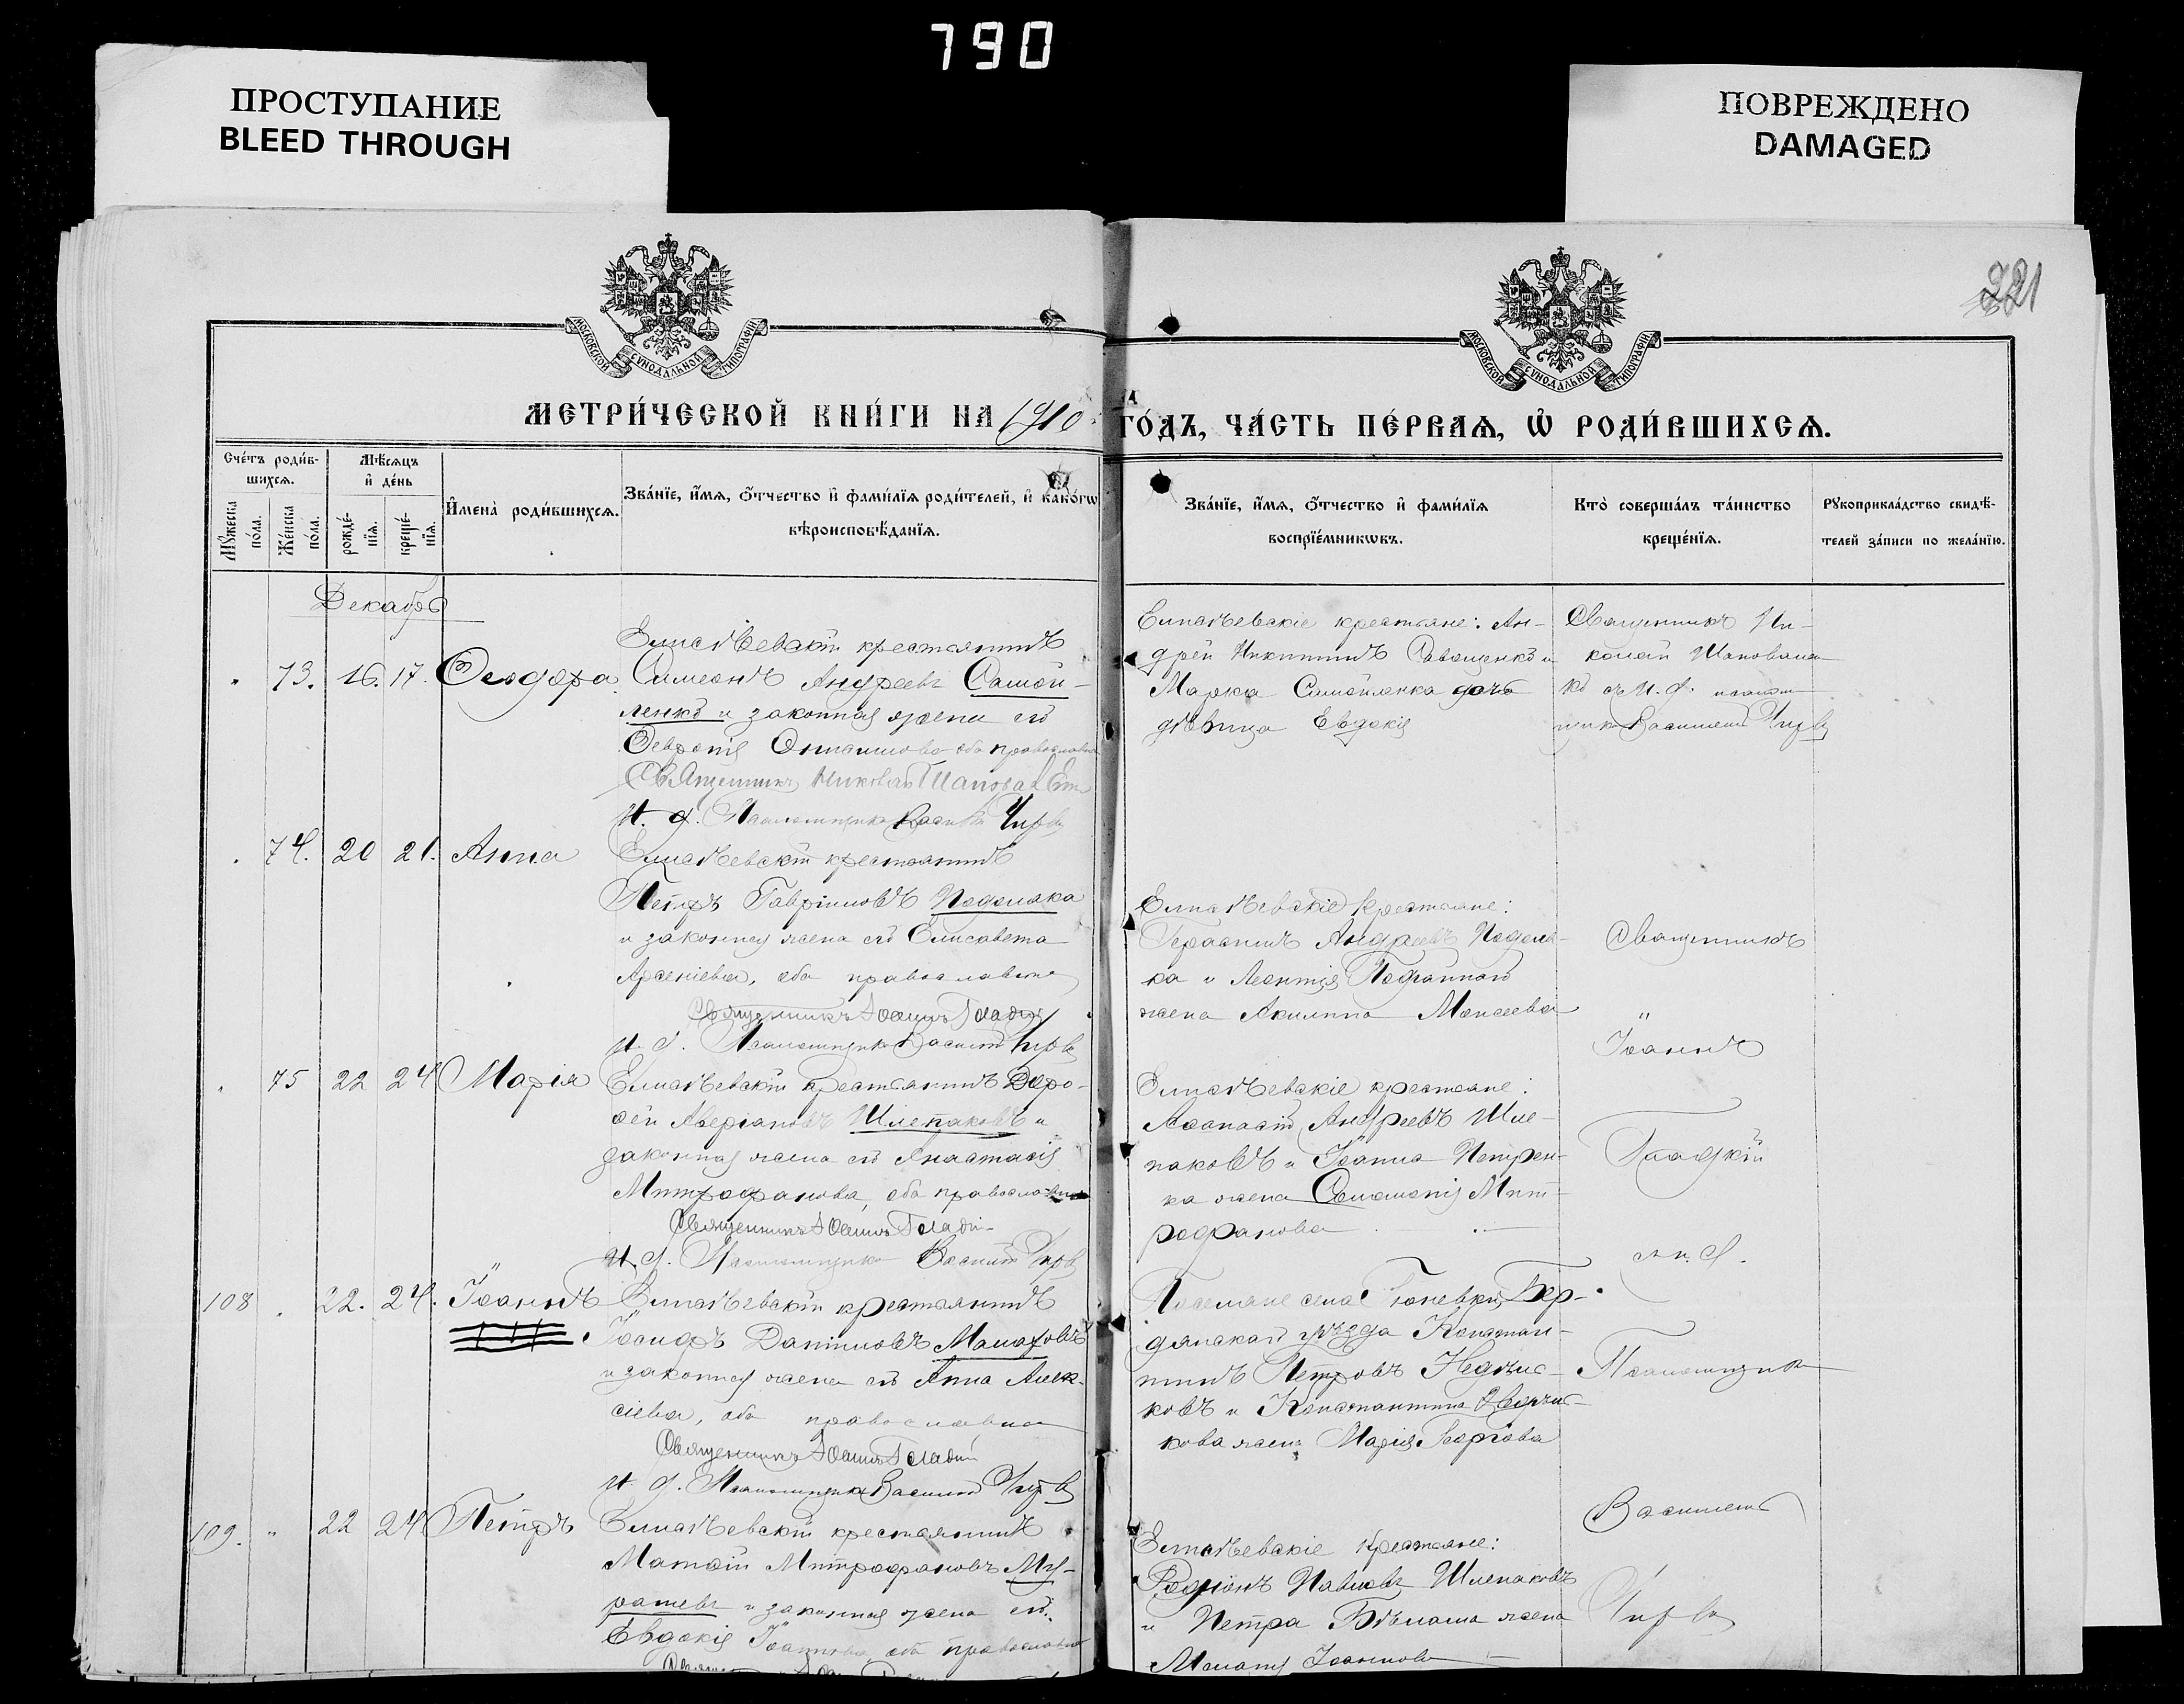 790
ПРОСТУПАНИЕ
BLEED THROUGH
ПОВРЕЖДЕНО
DAMAGED
221
МОСКОВСКОЙ СѴНОДАЛЬНОЙ ТИПОГРАФІИ
МОСКОВСКОЙ СѴНОДАЛЬНОЙ ТИПОГРАФІИ
МЕТРИ́ЧЕСКОЙ КНИ́ГИ НА 1910
ГО́ДЪ, ЧА́СТЬ ПЕ́РВАѦ, Ѿ РОДИ́ВШИХСѦ.
Сче́тъ роди́в-
шихсѧ.
Мꙋ́жеска
по́ла.
Же́нска
по́ла.
Мѣ́сѧцъ
и҆ де́нь
рожде́-
нїѧ.
креще́-
нїѧ.
И҆мена̀ роди́вшихсѧ.
Зва́нїе, и҆́мѧ, ѻ҆́тчество и҆ фами́лїѧ роди́телей, и҆ како́гѡ
вѣроисповѣ́данїѧ.
Зва́нїе, и҆́мѧ, ѻ҆́тчество и҆ фами́лїѧ
воспрїе́мникѡвъ.
Кто̀ соверша́лъ та́инство
креще́нїѧ.
Рꙋкоприкла́дство свидѣ́-
телей за́писи по жела́нїю.
Декабрь
" 73. 16. 17. Ѳеодора
Елисѣевскій крестьянинъ
Симеонъ Андреевъ Самой-
ленко и законная жена его
Феврония оба православные
Священникъ Николай Шаповаленко
И. д. Псаломщика Василій Чирва
Елисѣевскіе крестьяне: Ан-
дрей Никитинъ и
Марка Самойленка дочь
дѣвица Евдокія
Священникъ Ни-
колай Шаповален-
ко съ и. д. псалом-
щика Василіемъ Чирва
74. 20 21. Анна
Елисѣевскій крестьянинъ
Петръ Гавріиловъ Подоляка
и законная жена его Елисавета
Арсеніева, оба православные
Священникъ Іоаннъ Гладкій
И. д. Псаломщика Василій Чирва
Елисѣевскіе крестьяне:
Герасимъ Андреевъ Подоля-
ка и Леонтія
жена Акилина Моисеева
Священникъ
"
Іоаннъ
" 75 22 24 Марія
Елисѣевскій крестьянинъ Доро-
ѳей Аверіановъ Шлепаковъ и
законная жена его Анастасія
Митрофанова, оба православные
Священникъ Іоаннъ Гладкій
И. д. Псаломщика Василій Чирва
Елисѣевскіе крестьяне:
Аѳанасій Андреевъ Шле-
паковъ и Іоанна Петрен-
ка жена Мит-
рофанова
Гладкій
съ и. д.
108 " 22. 24. Іоаннъ
Елисѣевскій крестьянинъ
Іосифъ Даніиловъ
и законная жена его Анна Алек-
сіева, оба православные
Священникъ Іоаннъ Гладкій
И. д. Псаломщика Василій Чирва
Поселяне села Бер-
дянскаго уѣзда Констан-
тинъ Петровъ
ковъ и Константина
кова жена Марія Георгіева
Псаломщика
Василіемъ
109. " 22 24 Петръ
Елисѣевскій крестьянинъ
Матѳій Митрофановъ Му-
ратевъ и законная жена его
Евдокія Іоаннова, оба православные
Елисѣевскіе крестьяне:
Родіонъ Павловъ Шлепаковъ
и Петра жена
Меланія Іоаннова
Чирва